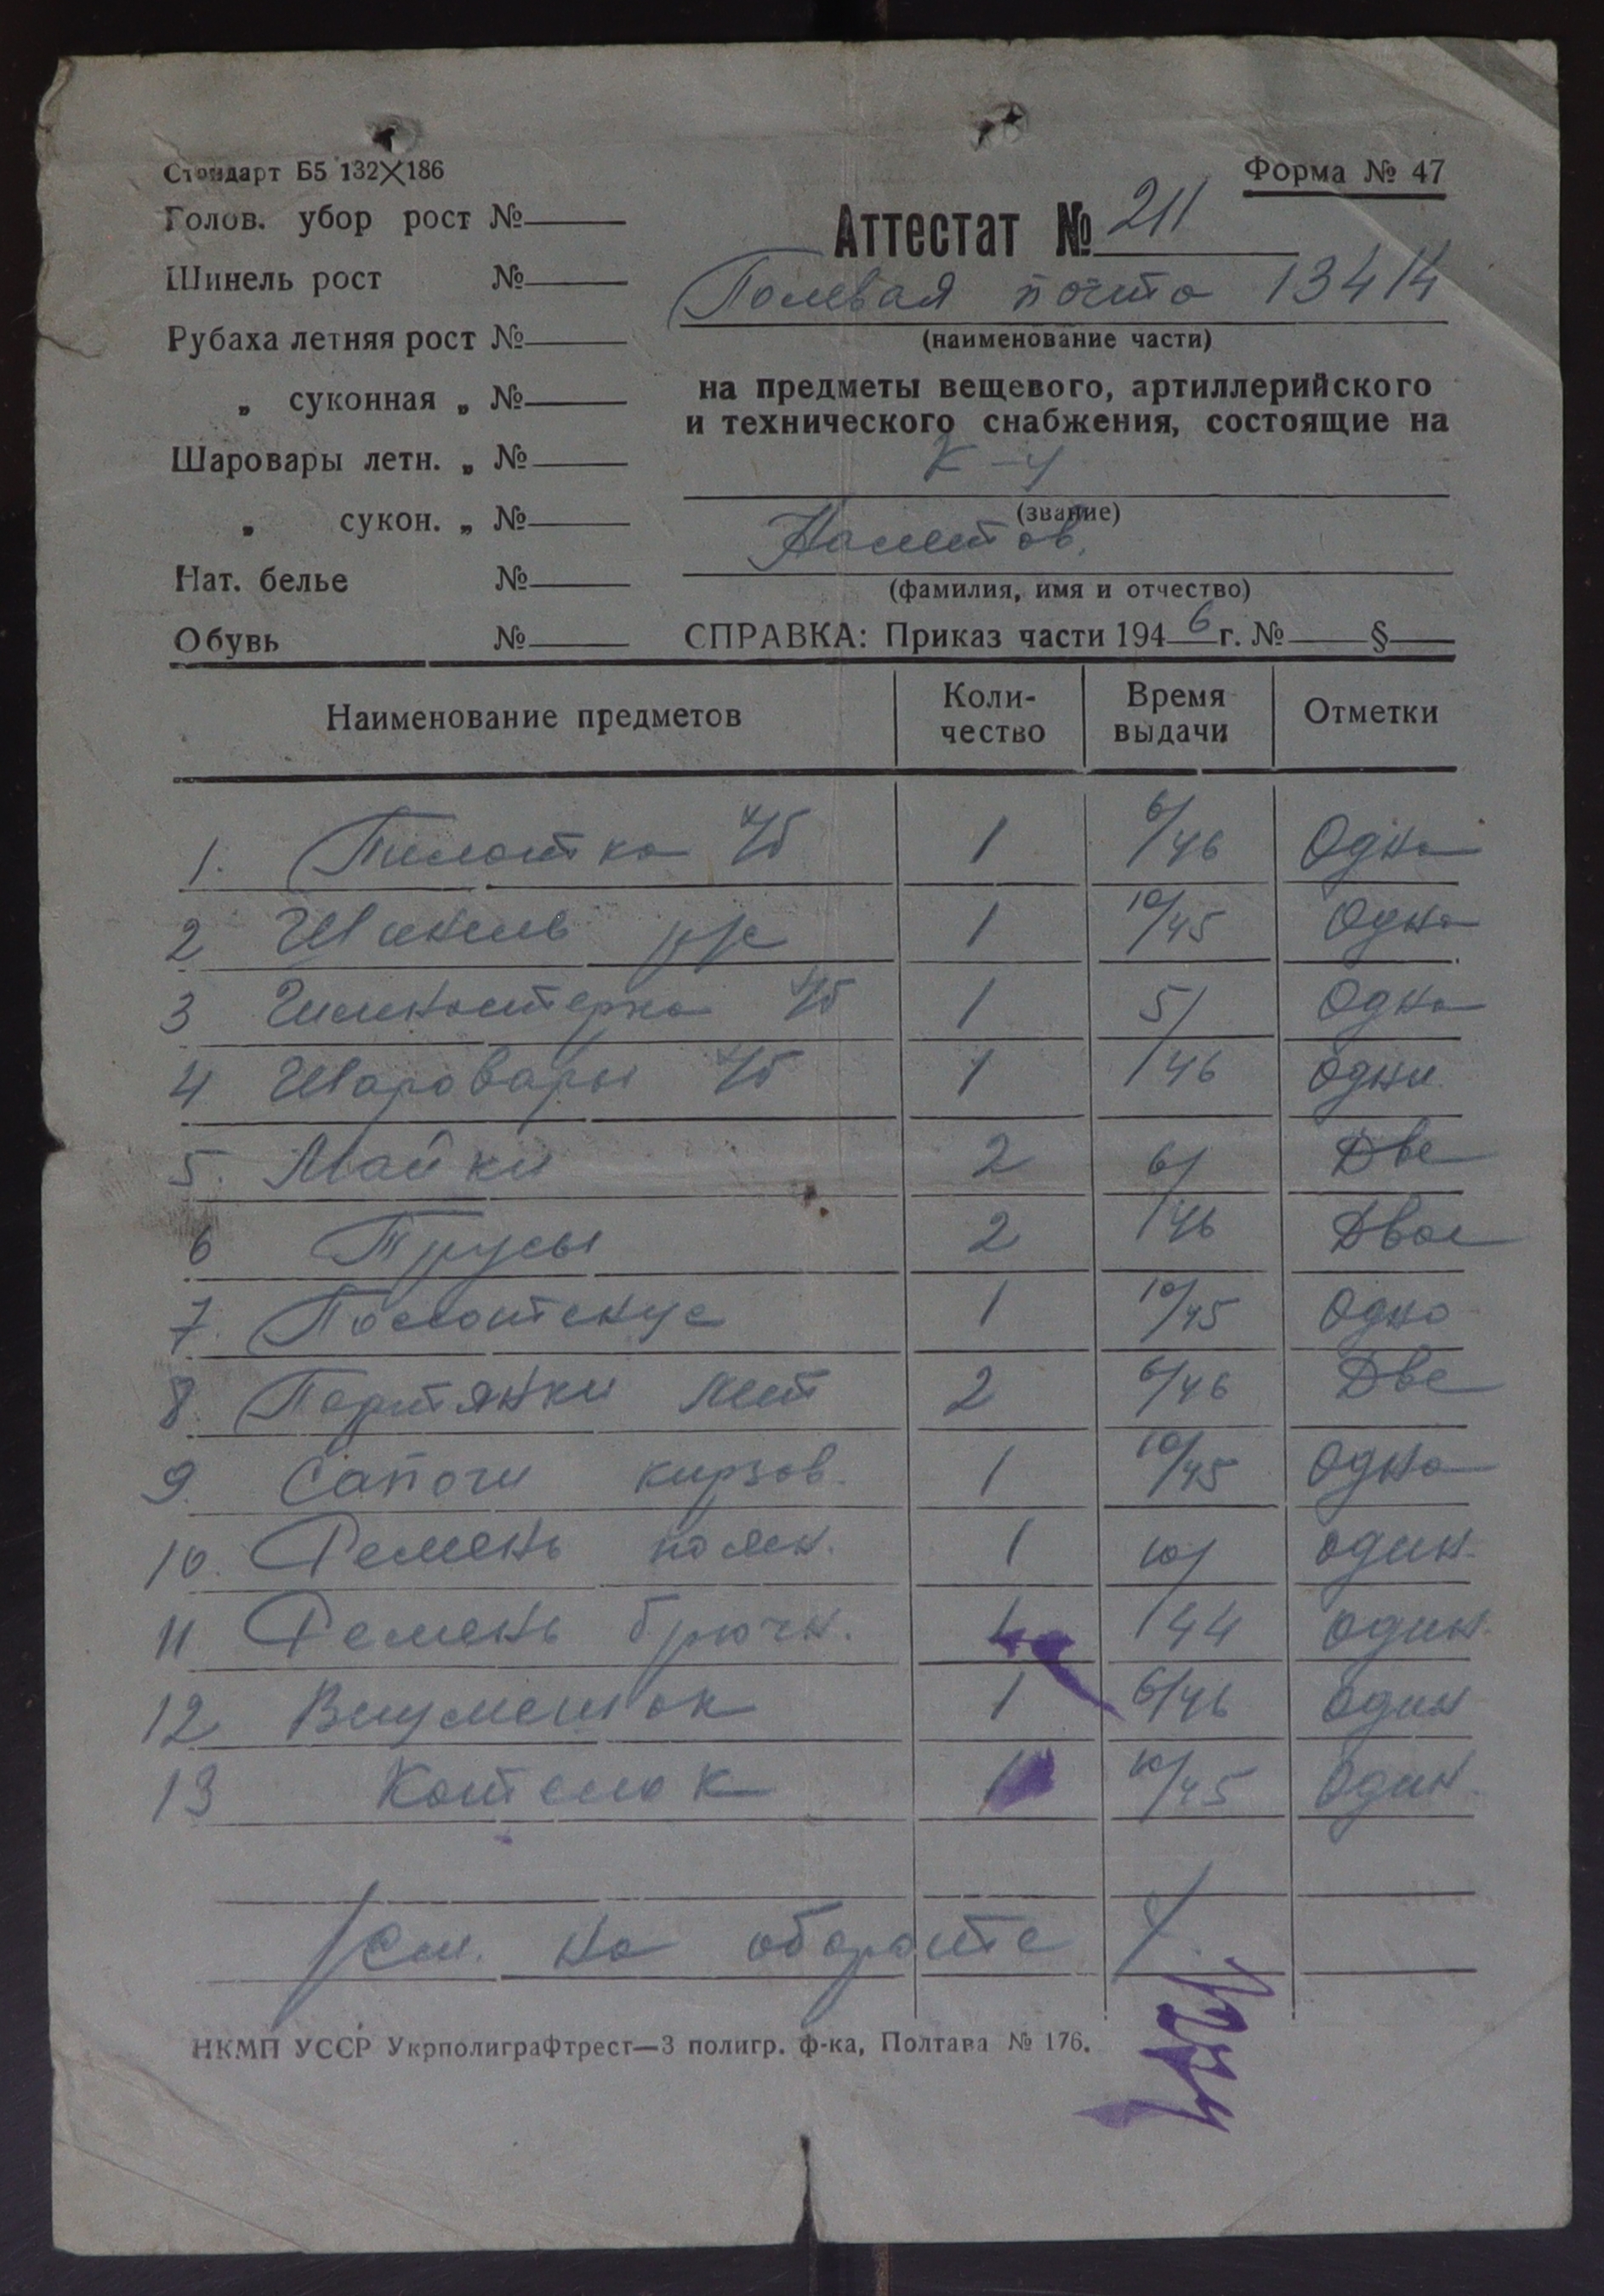 Стандарт Б5 132×186
Форма № 47
Голов. убор рост №
Шинель рост №
Рубаха летняя рост №
„ суконная „ №
Шаровары летн. „ №
„ сукон. „ №
Нат. белье №
Обувь №
Аттестат № 211
Полевая почта 13414
(наименование части)
на предметы вещевого, артиллерийского
и технического снабжения, состоящие на
к-у
(звание)
(фамилия, имя и отчество)
СПРАВКА: Приказ части 1946 г. № §
Наименование предметов Коли-чество Время выдачи Отметки
1. Пилотка х/б 1 6/46 Одна
2 Шинель 1 10/45 Одна
3 Гимнастерка х/б 1 5/ Одна
4 Шаровары х/б 1 /46 одни
5. Майки 2 6/ Две
6 Трусы 2 /46 Двое
7. Полотенце 1 10/45 Одно
8 Портянки лет 2 6/46 Две
9. Сапоги кирзов. 1 10/45 Одна
10. Ремень поясн. 1 10/ один
11 Ремень брючн. 1 /44 один
12 Вещмешок 1 6/46 один
13 Котелок 1 10/45 Один
/см. на обороте/
НКМП УССР Укрполиграфтрест—3 полигр. ф-ка, Полтава № 176.